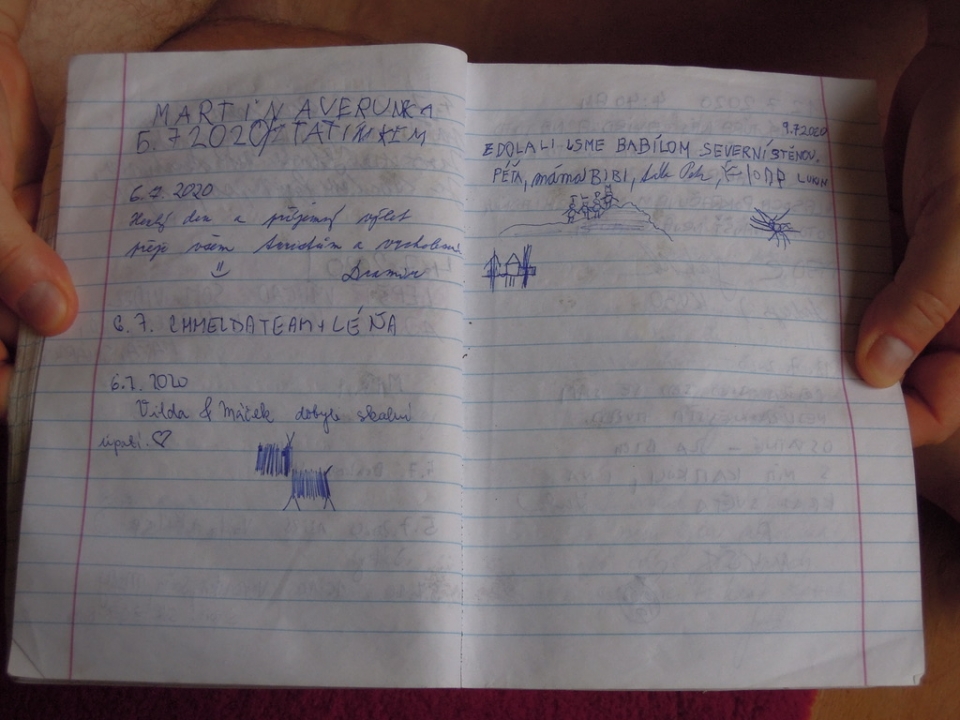 MARTIN A VERUNKA
5.7 2020 S TATÍNKEM
6.7. 2020
Hezký den a příjemný výlet
přeje všem
6.7. CHMELDATEAM + LÉŇA
6.7. 2020
Vilda & Máček dobyli skalní
úpatí. ♡
9.7 2020
ZDOLALI JSME BABÍLOM SEVERNÍ STĚNOU.
PÉŤA, máma BIBI,